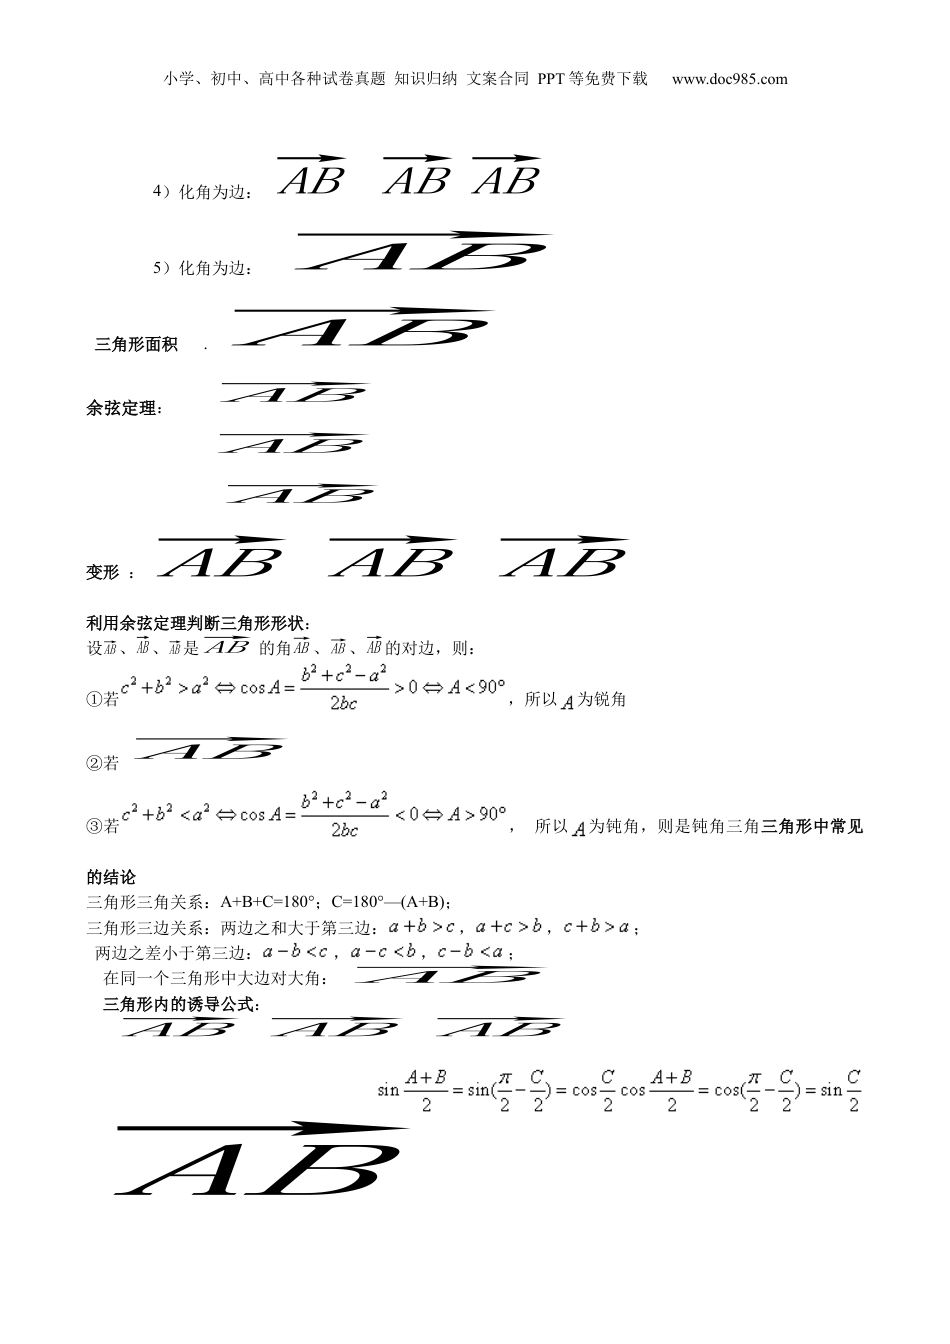 小学、初中、高中各种试卷真题 知识归纳 文案合同 PPT等免费下载 www.doc985.com
4）化角为边： AB AB AB
5）化角为边： AB
三角形面积 . AB
余弦定理： AB
AB
AB
变形 ： AB AB AB
利用余弦定理判断三角形形状：
设AB、AB、AB是 AB 的角AB、AB、AB的对边，则：
①若c²+b²>a²⇔cosA=(b²+c²−a²)/2bc>0⇔A<90°，所以A为锐角
②若 AB
③若c²+b²<a²⇔cosA=(b²+c²−a²)/2bc<0⇔A>90°， 所以A为钝角，则是钝角三角三角形中常见
的结论
三角形三角关系：A+B+C=180°；C=180°—(A+B)；
三角形三边关系：两边之和大于第三边：a+b>c，a+c>b，c+b>a；
两边之差小于第三边：a−b<c，a−c<b，c−b<a；
在同一个三角形中大边对大角： AB
三角形内的诱导公式：
AB AB AB
sin (A+B)/2=sin(π/2−C/2)=cos C/2 cos (A+B)/2=cos(π/2−C/2)=sin C/2
AB